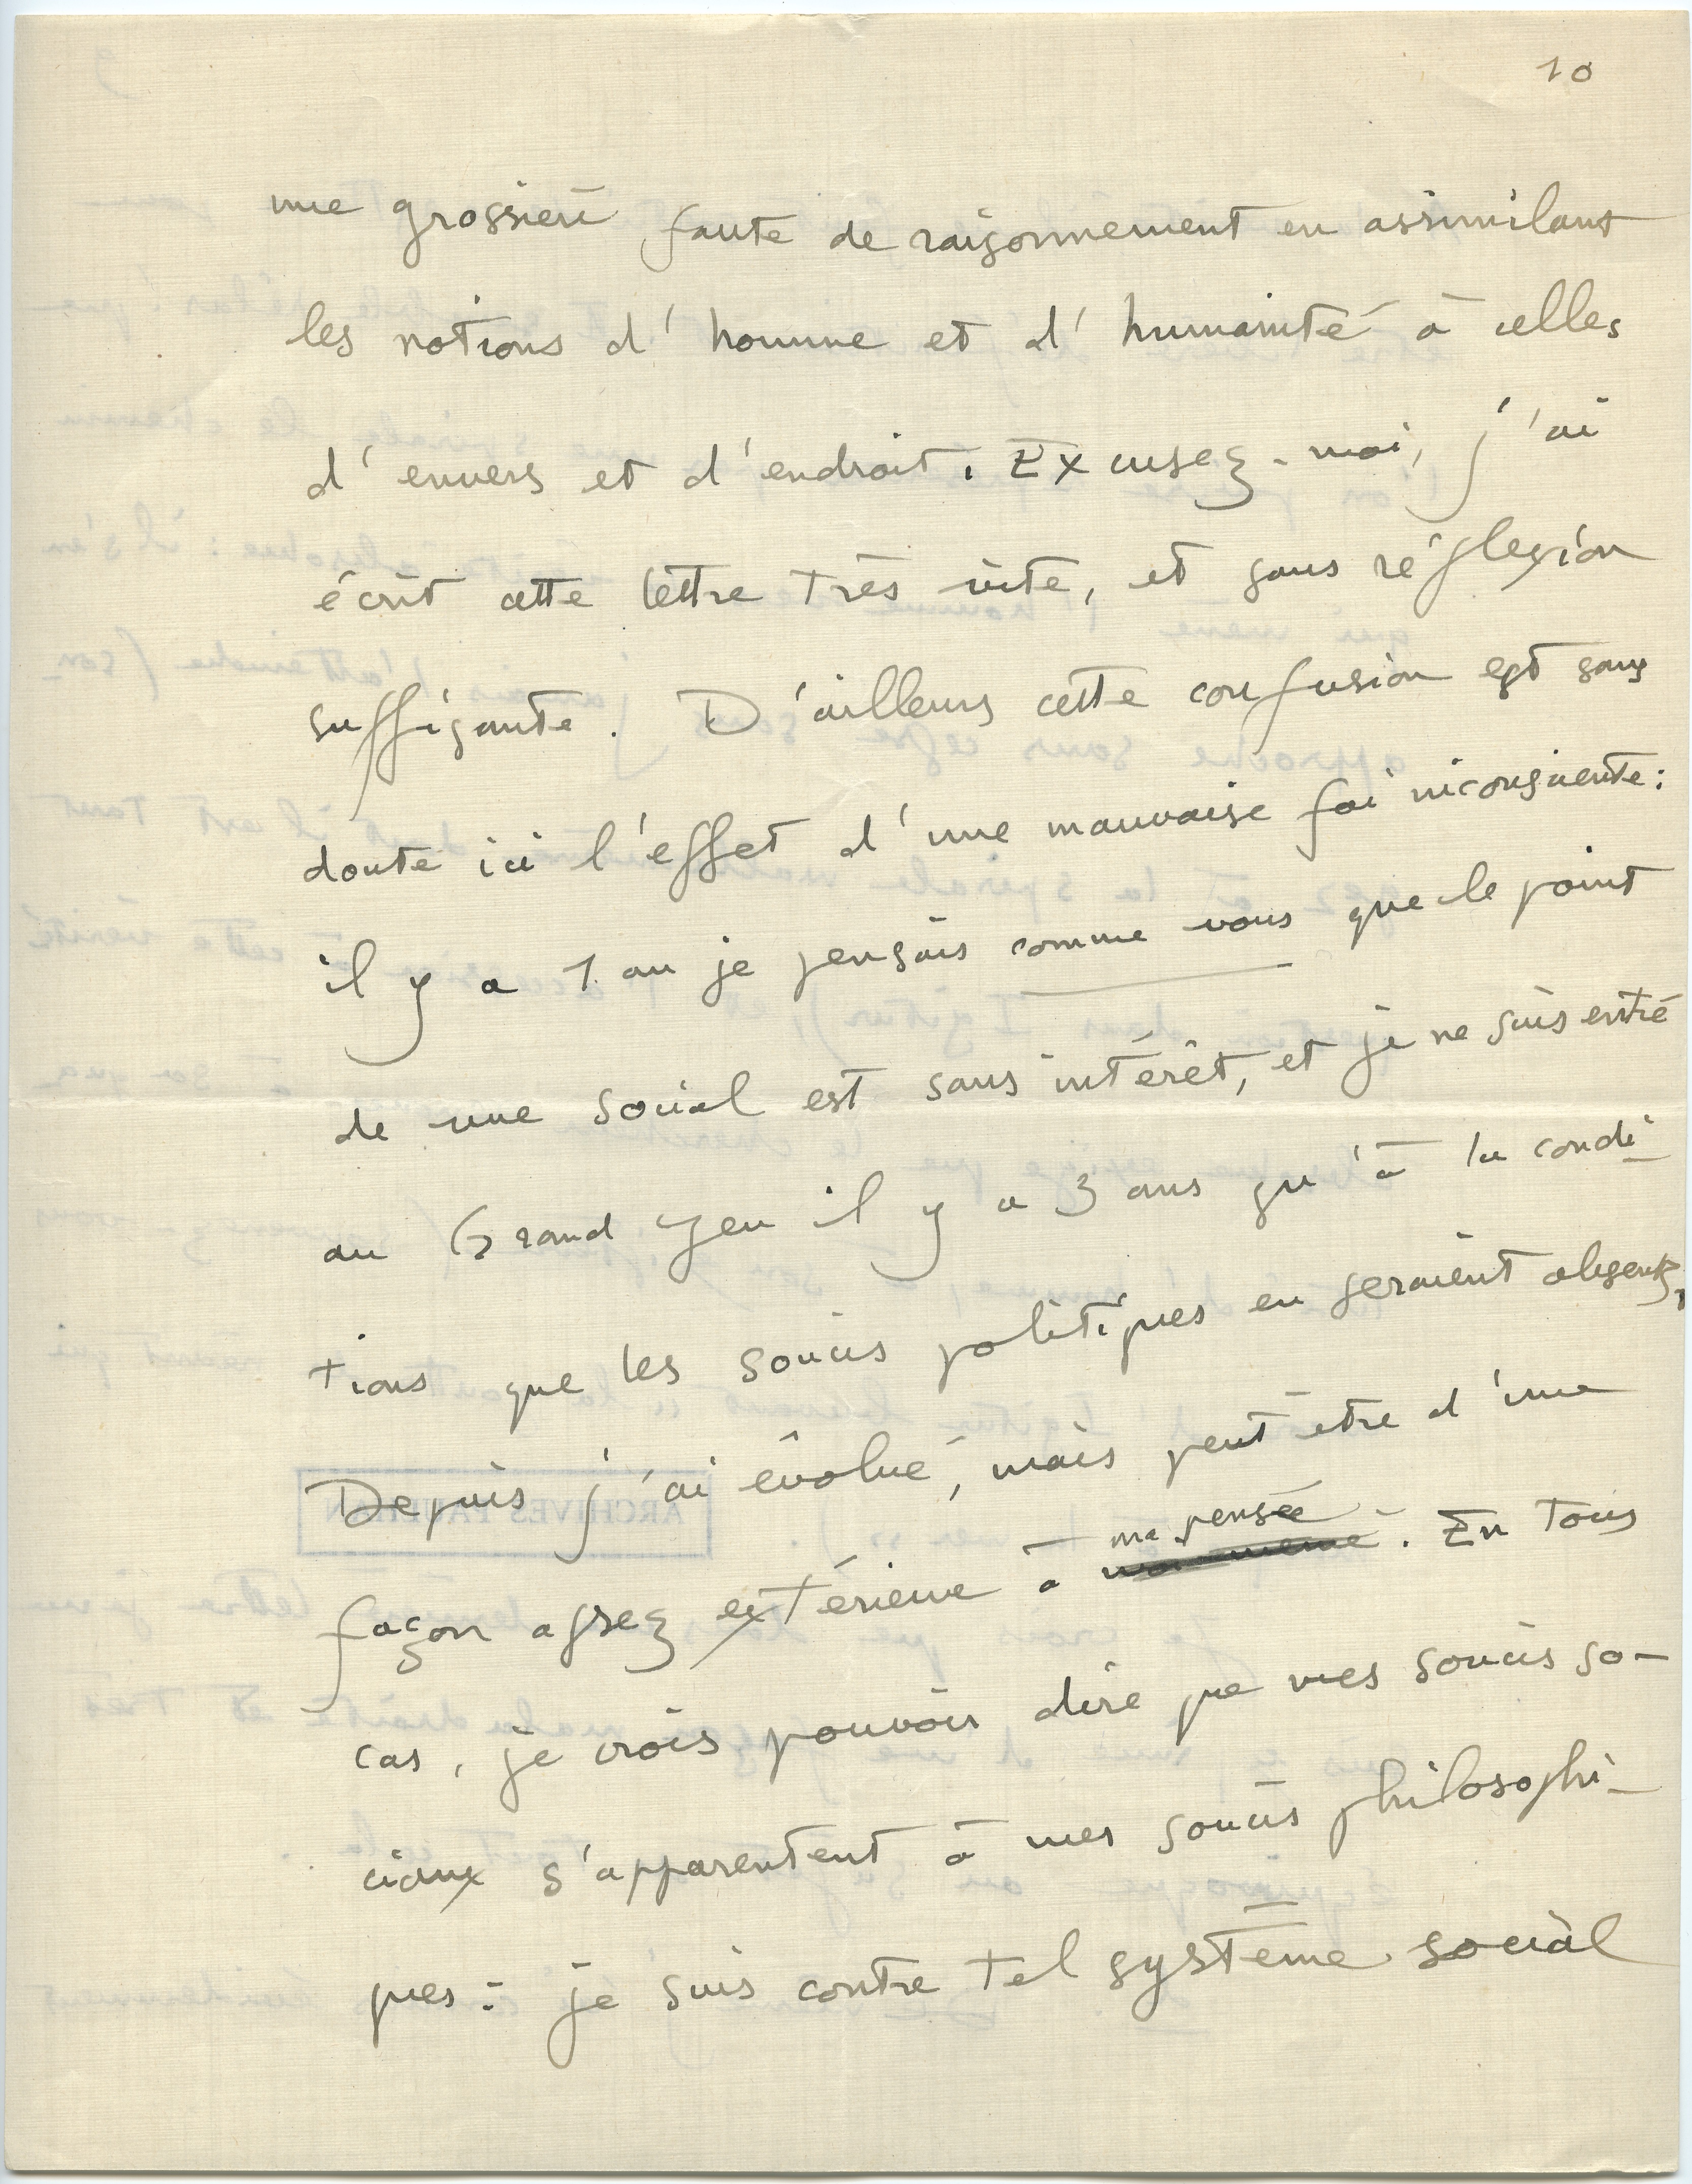 10
une grossière faute de raisonnement en assimilant
les notions d'homme et d'humanité à celles
d'envers et d'endroit. Excusez-moi, j'ai
écrit cette lettre très vite, et sans réflexion
suffisante. D'ailleurs cette confusion est sans
doute ici l'effet d'une mauvaise foi inconsciente:
il y a 1 an je pensais comme vous que le point
de vue social est sans intérêt, et je ne suis entré
au Grand Jeu il y a 3 ans qu'à la condi-
tions que les soucis politiques en seraient absents,
Depuis j'ai évolué, mais peut être d'une
ma pensée
façon assez extérieure à moi-même. En tous
cas, je crois pouvoir dire que mes soucis so-
ciaux s'apparentent à mes soucis philosophi-
ques: je suis contre tel système social